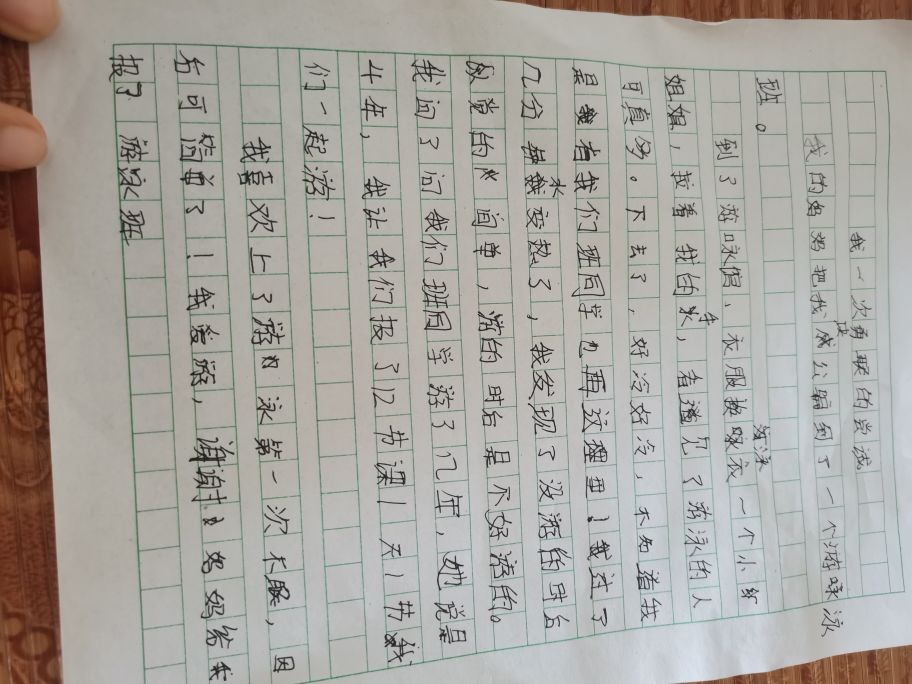 我一次勇取的尝试
我的妈妈把我成功骗到了一个游咏泳
班。
到了游咏馆、衣服换游泳衣一个小
姐姐，拉着我的手，看遥见了游泳的人
可真多。下去了，好冷好冷，不知道我
是看有我们班同学也再这里里！我过了
几分水变热了，我发现了没游的时后
感觉的间单，游的时后是不好游的。
我问了问我们班同学游了几年，她说是
4年，我让我们报了12节课1天1节我
们一起游！
我喜欢上了游泳第一次不眼，因
为可简单了！我爱游，谢谢妈妈给我
报了游泳班